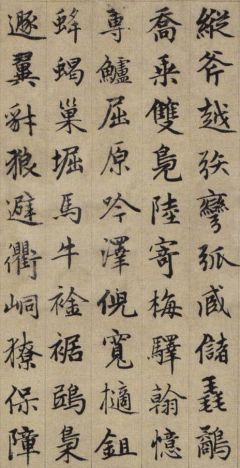 縱斧越彎弧儲鷸
喬乘雙鳧陸寄梅驛翰憶
專鱸屈原吟澤倪寬擿鉏
蜂蝎巢堀馬牛裾鴟梟
遯翼豺狼避衢峒獠保障